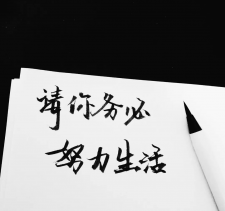 请你务必
努力生活